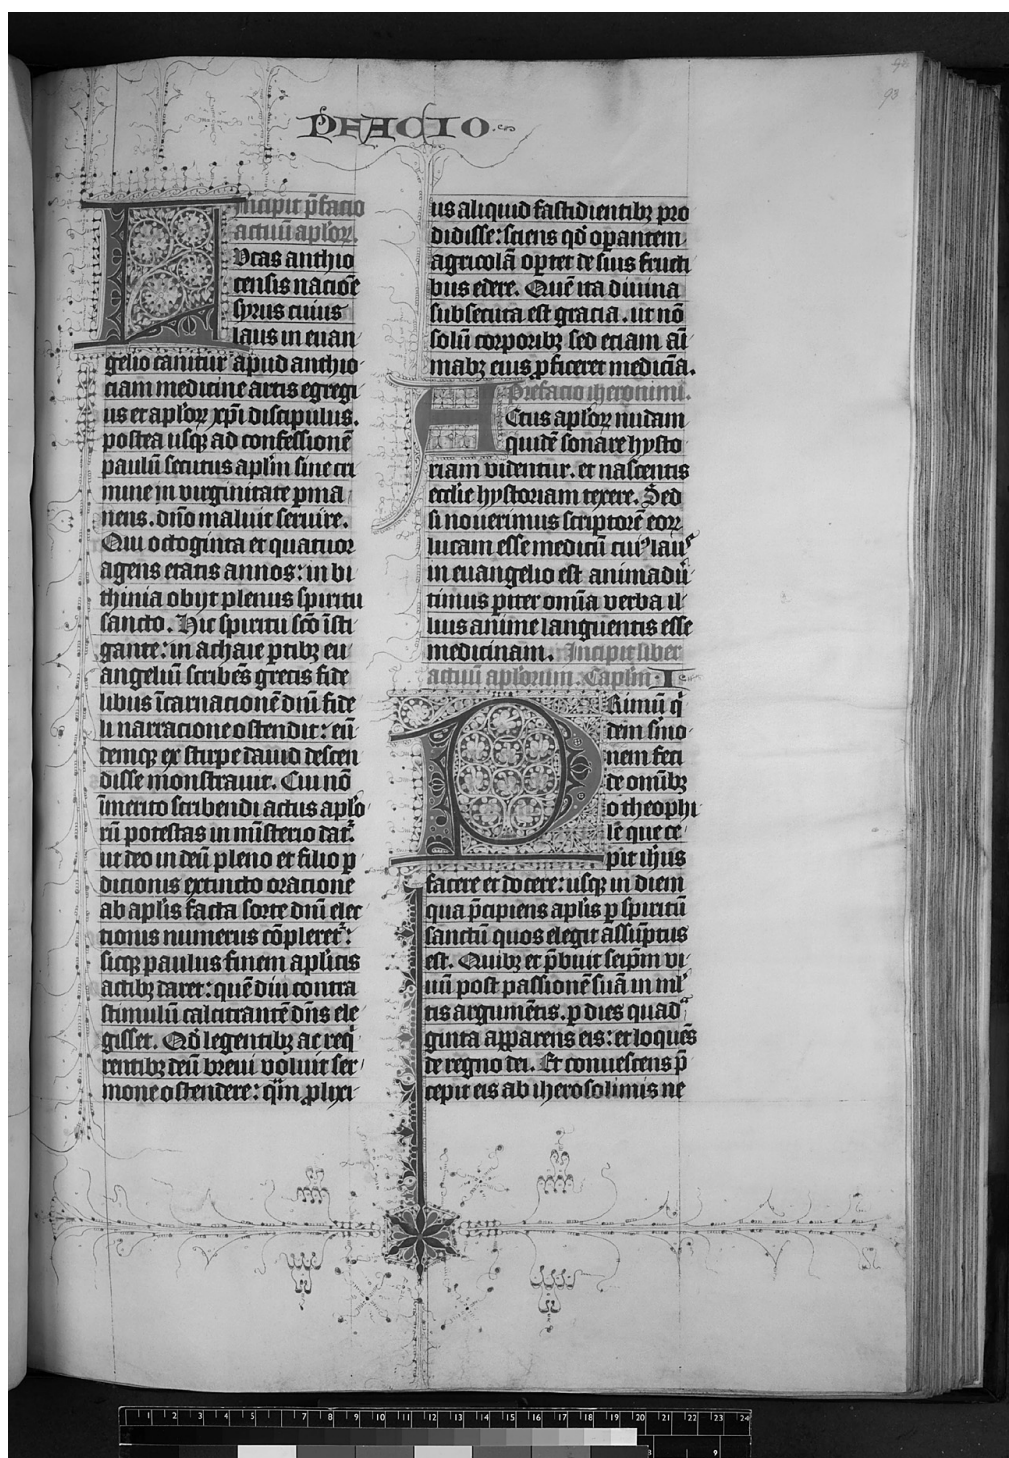 PFACIO
93
Incipit p̄facio
actuū aplo̓ꝝ.
Vcas anthio
censis nacio͞e
syrus cuius
laus in euan
gelio canitur apud anthio
ciam medicine artis egregi
us et aplo̓ꝝ xp̄i discipulus.
postea usqꝫ ad confessionē
paulū secutus aplm̄ sine cri
mine in virginitate ꝑma
nens. dn̄o maluit seruire.
Qui octoginta et quatuor
agens etatis annos: in bi
thinia obijt plenus spiritu
sancto. Hic spiritu sc̄o īsti
gante: in achaie ꝑtibꝫ eu
angeliū scribēs grecis fide
libus īcarnacionē dn̄i fide
li narracione ostendit: eū
demqꝫ ex stirpe dauid descen
disse monstrauit. Cui nō
īmerito scribendi actus aplo̓
rū potestas in mīsterio dat᷑.
ut deo in deū pleno et filio ꝑ
dicionis extincto oracione
ab aplīs facta sorte dn̄i elec
tionis numerus cōpleret᷑:
sicqꝫ paulus finem aplīcis
actibꝫ daret: quē diu contra
stimulū calcitrantē dn̄s ele
gisset. Qd̓ legentibꝫ ac req̓
rentibꝫ deū breui voluit ser
mone ostendere: q̄m ꝓlixi
us aliquid fastidientibꝫ pro
didisse: sciens qd̓ oꝑantem
agricolā oꝑter de suis fructi
bus edere. Quē ita diuina
subsecuta est gracia. ut nō
solū corporibꝫ sed eciam ai̅
mabꝫ eius ꝓficeret medici̅a.
Prefacio iheronimi.
Ctus aplo̓ꝝ nudam
quidē sonare hysto
riam videntur. et nascentis
eccl̄ie hystoriam texere. Sed
si nouerimus scriptorē eoꝝ
lucam esse medicū cui᷒ lau᷒
in euangelio est animadū
timus ꝑiter omīa verba il
lius anime languentis esse
medicinam. Incipit liber
actuū aplo̓rum. Caplm̄ I
Rimū q̓
dem smo
nem feci
de omībꝫ
o theophi
le que ce
pit ih̄us
facere et docere: usqꝫ in diem
qua p̄cipiens aplīs ꝑ spiritū
sanctū quos elegit assūptus
est. Quibꝫ et p̄buit seipm̄ vi
uū post passionē suā in ml̓
tis argumētis. ꝑ dies quadᵃ
ginta aꝑparens eis: et loquēs
de regno dei. Et conuescens p̄
cepit eis ab iherosolimis ne
1 2 3 4 5 7 8 9 10 11 12 13 14 15 16 17 18 19 20 21 22 23 24